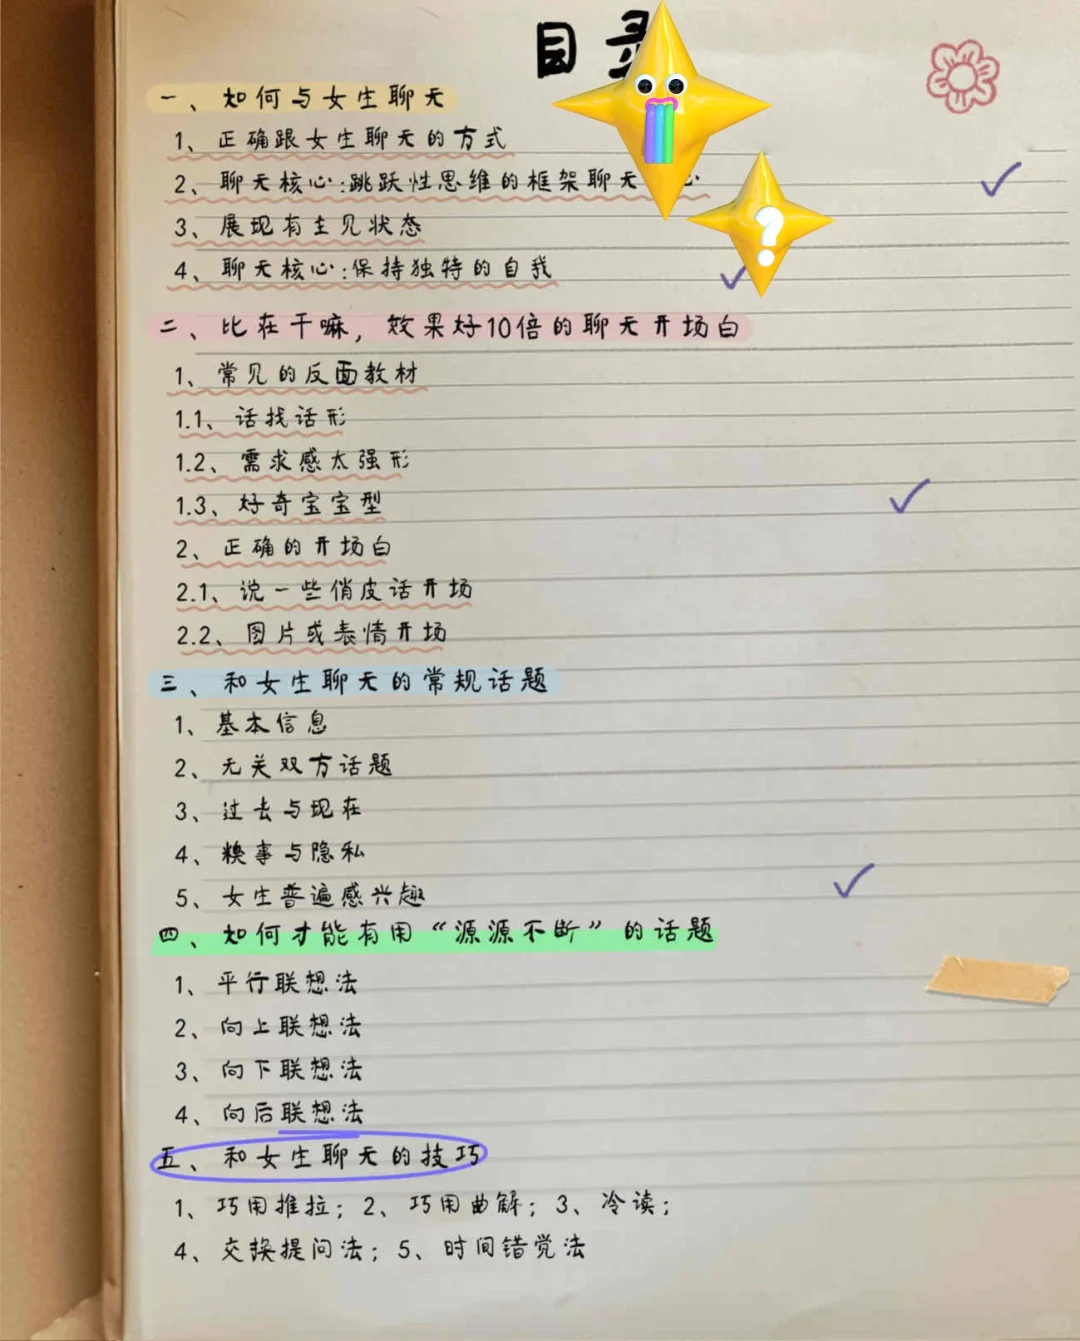 目录
一、如何与女生聊天
1、正确跟女生聊天的方式
2、聊天核心:跳跃性思维的框架聊天心
3、展现有主见状态
4、聊天核心:保持独特的自我
?
二、比在干嘛，效果好10倍的聊天开场白
1、常见的反面教材
1.1、话找话形
1.2、需求感太强形
1.3、好奇宝宝型
2、正确的开场白
2.1、说一些俏皮话开场
2.2、图片或表情开场
三、和女生聊天的常规话题
1、基本信息
2、无关双方话题
3、过去与现在
4、糗事与隐私
5、女生普遍感兴趣
四、如何才能有用“源源不断”的话题
1、平行联想法
2、向上联想法
3、向下联想法
4、向后联想法
五、和女生聊天的技巧
1、巧用推拉；2、巧用曲解；3、冷读；
4、交换提问法；5、时间错觉法